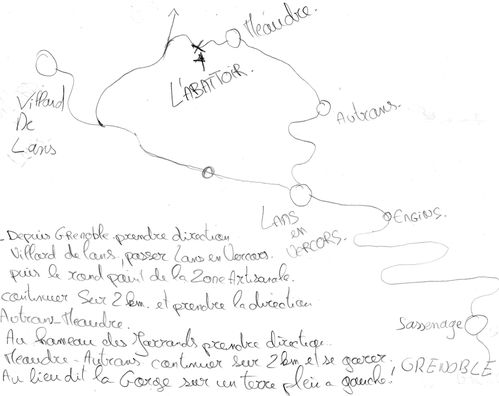 Méaudre.
L'ABATTOIR.
Villard
De
Lans
Autrans.
LANS
en
VERCORS.
ENGINS.
Sassenage
GRENOBLE
- Depuis Grenoble prendre direction
Villard de lans, passer Lans en Vercors.
puis le rond point de la Zone Artisanale.
continuer sur 2 km. et prendre la direction
Autrans-Meaudre.
Au hameau des Jarrands prendre direction.
Meaudre-Autrans continuer sur 2 km et se garer,
Au lieu dit la Gorge sur un terre plein a gauche!